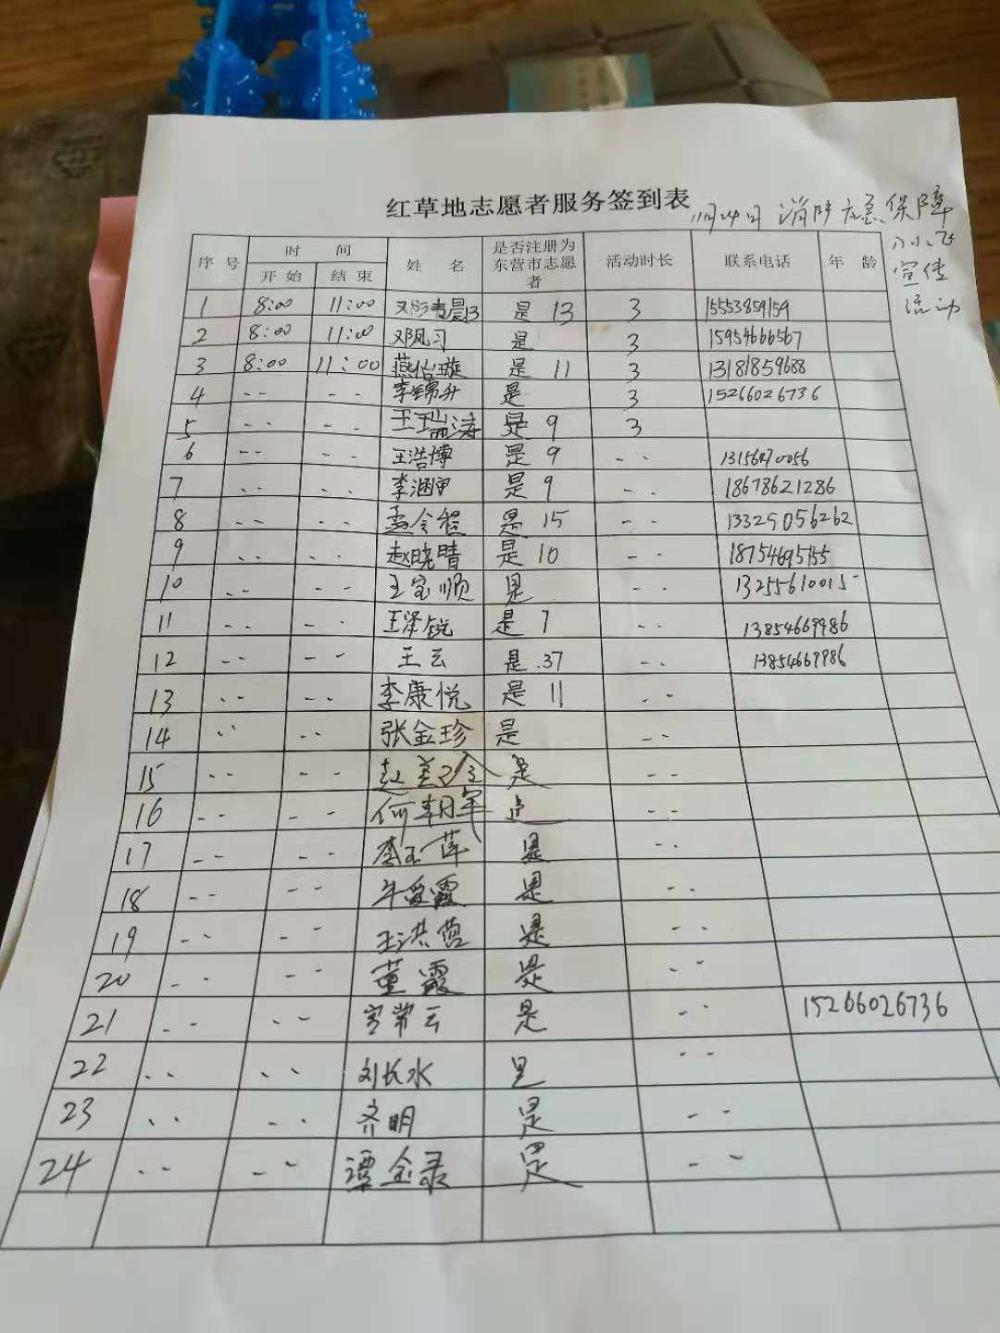 红草地志愿者服务签到表
11月24日 消防应急保障
八小飞
宣传
流动
序号 时间 姓名 是否注册为东营市志愿者 活动时长 联系电话 年龄
开始 结束
1 8:00 11:00 是 13 3 15553859159
2 8:00 11:00 邓凤习 是 3 15954666567
3 8:00 11:00 燕怡璇 是 11 3 13181859688
4 -- -- 李锦升 是 3 15266026736
5 -- -- 王瑞涛 是 9 3
6 -- -- 王浩博 是 9 -- 13156470056
7 -- -- 李涵甲 是 9 -- 18678621286
8 -- -- 孟令程 是 15 -- 13325056262
9 -- -- 赵晓晴 是 10 -- 18754695155
10 -- -- 王宝顺 是 -- 13255610015
11 -- -- 王泽锐 是 7 -- 13854669986
12 -- -- 王云 是 .37 -- 13854669986
13 -- -- 李康悦 是 11 --
14 -- -- 张金珍 是 --
15 -- -- 赵 是 --
16 -- -- 何朝军 是 --
17 -- -- 李玉萍 是 --
18 -- -- 牛爱霞 是 --
19 -- -- 王洪营 是 --
20 -- -- 董霞 是 --
21 -- -- 宫常云 是 -- 15266026736
22 -- -- 刘长水 是 --
23 -- -- 齐明 是 --
24 -- -- 谭金录 是 --